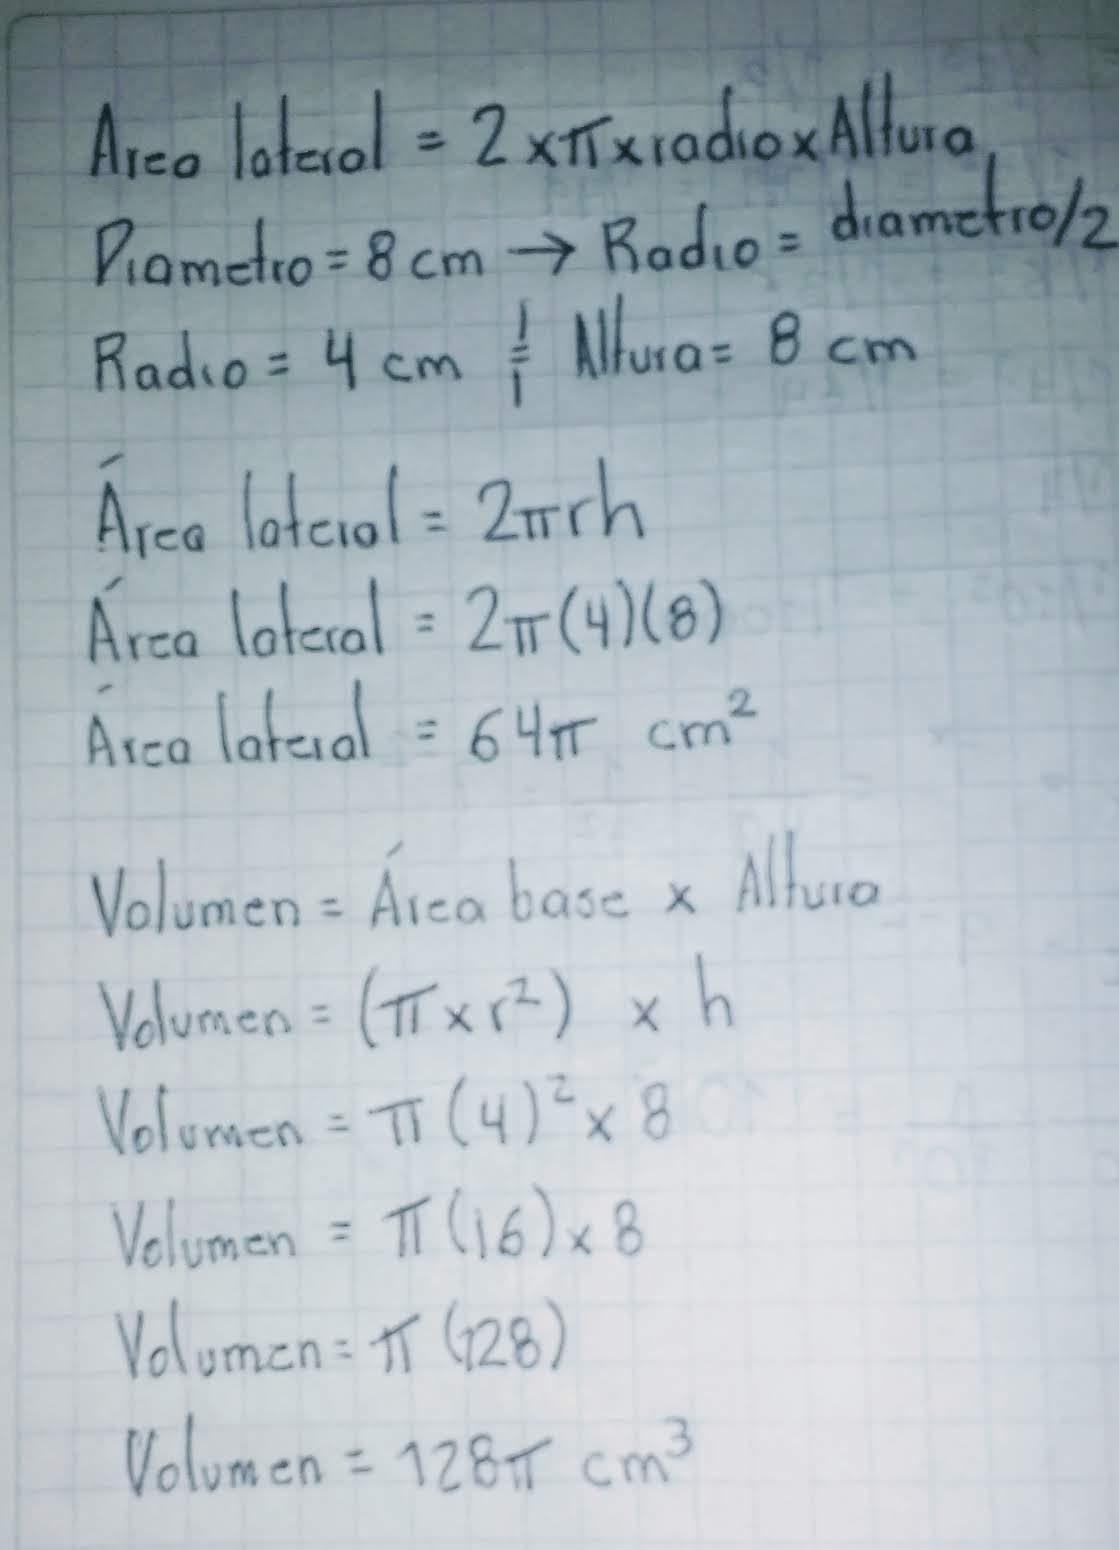 Area lateral = 2 x π x radio x Altura
Diametro = 8 cm → Radio = diametro/2
Radio = 4 cm Altura = 8 cm
Área lateral = 2πrh
Área lateral = 2π(4)(8)
Área lateral = 64π cm²
Volumen = Área base x Altura
Volumen = (π x r²) x h
Volumen = π(4)² x 8
Volumen = π(16) x 8
Volumen = π(128)
Volumen = 128π cm³